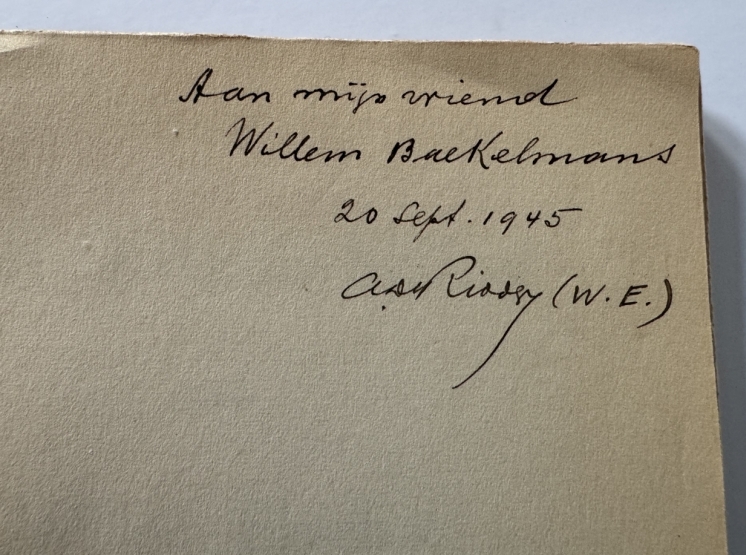 Aan mijn vriend
Willem Baekelmans
20 Sept. 1945
A. de Ridder (W. E.)